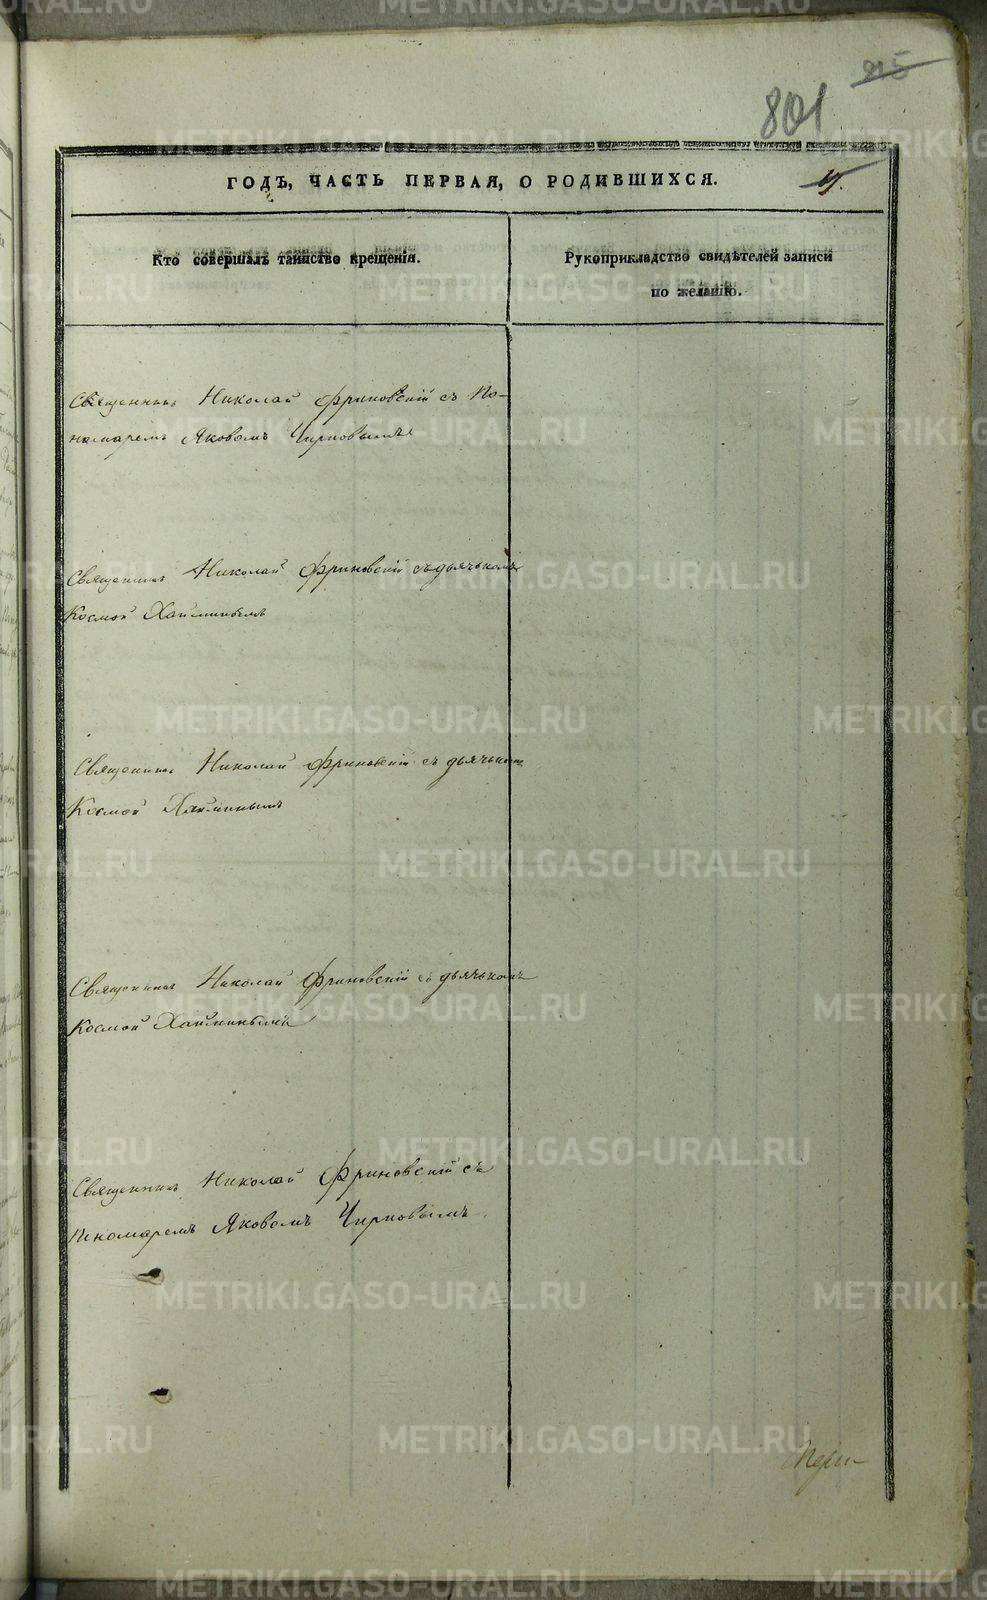 815
801
ГОДЪ, ЧАСТЬ ПЕРВАЯ, О РОДИВШИХСЯ.
Кто совершалъ таинство крещенія.
Рукоприкладство свидѣтелей записи
по желанію.
Священникъ Николай Фриновскій съ По-
номаремъ Яковомъ Чирковымъ
Священникъ Николай Фриновскій съ дьячькомъ
Космой Хайминымъ
Священникъ Николай Фриновскій съ дьячькомъ
Космой Хайминымъ
Священникъ Николай Фриновскій съ дьячькомъ
Космой Хайминымъ
Священникъ Николай Фриновскій съ
пономаремъ Яковомъ Чирковымъ
METRIKI.GASO-URAL.RU